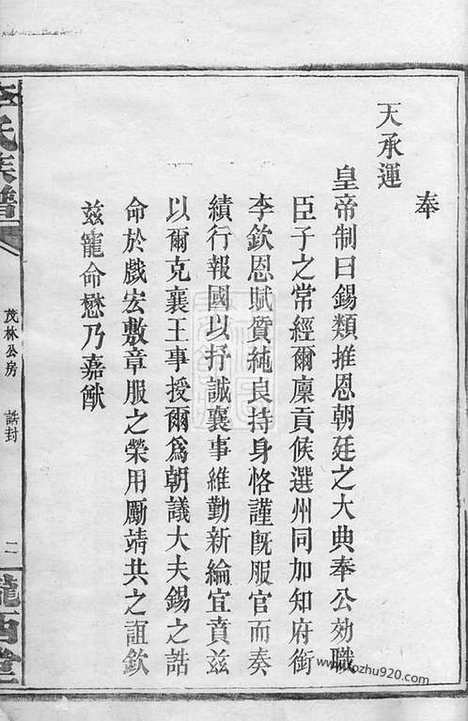 奉
天承運
皇帝制曰錫類推恩朝廷之大典奉公効職
臣子之常經爾廩貢候選州同加知府銜
李欽恩賦質純良持身恪謹旣服官而奏
績行報國以抒誠襄事維勤新綸宜賁兹
以爾克襄王事授爾爲朝議大夫錫之誥
命於戲宏敷章服之榮用勵靖共之誼欽
兹寵命懋乃嘉猷
李氏族譜
茂林公房 誥封
二
隴西堂
www.kozhu920.com